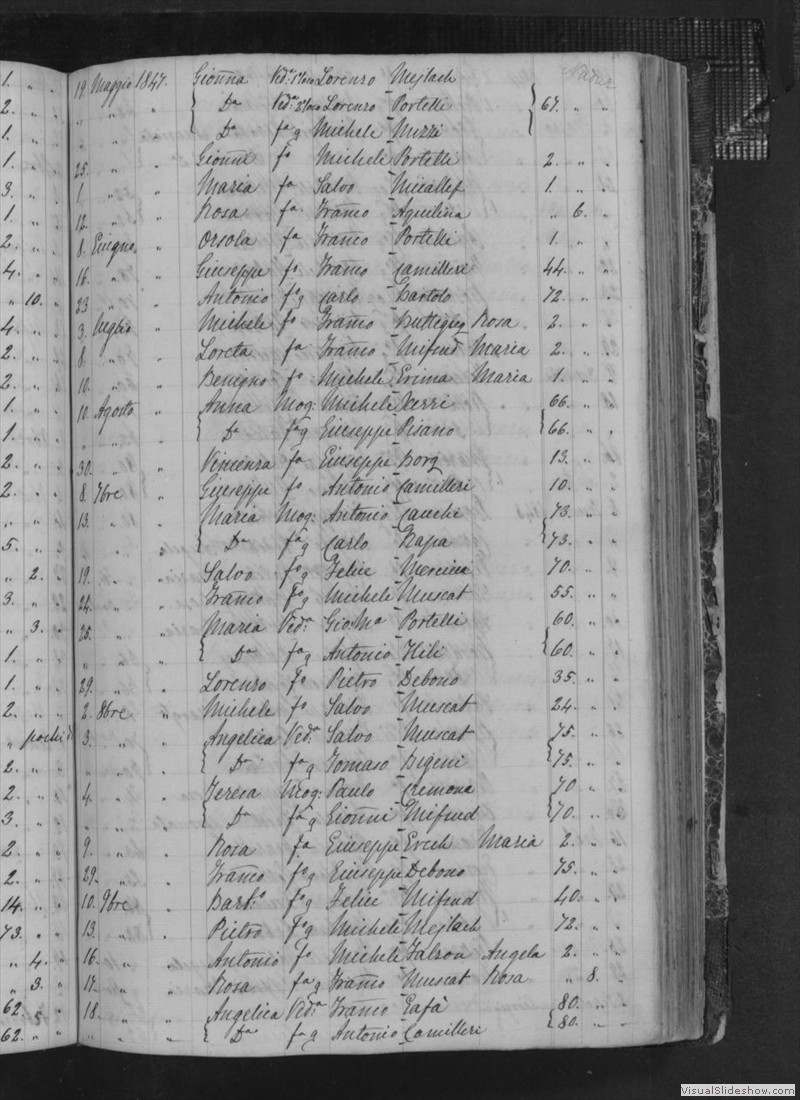 Nadur
1. " " 19. Maggio 1847. Gionna Ved.a 1mo Lorenzo Mejlach
2. " " " " " { Da Ved.a 2do Lorenzo Portelli { 67. " "
1. " " " " " { Da fa q Michele Mizzi
1. " " 25. " " Gionni fo Michele Portelli 2. " "
3. " " 1 " " Maria fa Salvo Micallef 1. " "
1. " " 12. " " Rosa fa Franco Aquilina " 6. "
2. " " 8. Giugno " Orsola fa Franco Portelli 1. " "
4. " " 16. " " Giuseppe fo Franco Camilleri 44. " "
" 10. " 23 " " Antonio fo q Carlo Bartolo 72. " "
4. " " 3. Luglio " Michele fo Franco Buttigieg Rosa 2. " "
2. " " 8. " " Loreta fa Franco Mifsud Maria 2. " "
2. " " 10. " " Benigno fo Michele Grima Maria 1. " "
1. " " 10. Agosto " Anna Mog: Michele Xerri 66. " "
1. " " " " " { Da fa q Giuseppe Pisano { 66. " "
2. " " 30. " " Vincenza fa Giuseppe Borg 13. " "
2. " " 8. 7bre " Giuseppe fo Antonio Camilleri 10. " "
" " " 13. " " Maria Mog: Antonio Cauchi 73. " "
5. " " " " " { Da fa q Carlo Rapa { 73. " "
" 2. " 19. " " Salvo fo q Felice Mercieca 70. " "
3. " " 24. " " Franco fo q Michele Muscat 55. " "
" 3. " 25. " " Maria Ved.a Gio Ma Portelli 60. " "
1. " " " " " { Da fa q Antonio Hili { 60. " "
1. " " 29. " " Lorenzo fo Pietro Debono 35. " "
2. " " 2. 8bre " Michele fo Salvo Muscat 24. " "
" pochi di 3. " " Angelica Ved.a Salvo Muscat 75. " "
2. " " " " " { Da fa q Tomaso Bigeni { 75. " "
2. " " 4. " " Teresa Mog: Paulo Cremona 70 " "
3. " " " " " { Da fa q Gionni Mifsud { 70. " "
2. " " 9. " " Rosa fa Giuseppe Grech Maria 2. " "
2. " " 29. " " Franco fo q Giuseppe Debono 75. " "
14. " " 10. 9bre " Bart.o fo q Felice Mifsud 40. " "
73. " " 13. " " Pietro fo q Michele Mejlach 72. " "
" 4. " 16. " " Antonio fo Michele Falzon Angela 2. " "
" 3. " 17. " " Rosa fa q Franco Muscat Rosa " 8. "
62. " " 18. " " Angelica Ved.a Franco Gafà 80. " "
62. " " " " " { Da fa q Antonio Camilleri { 80. " "
VisualSlideshow.com